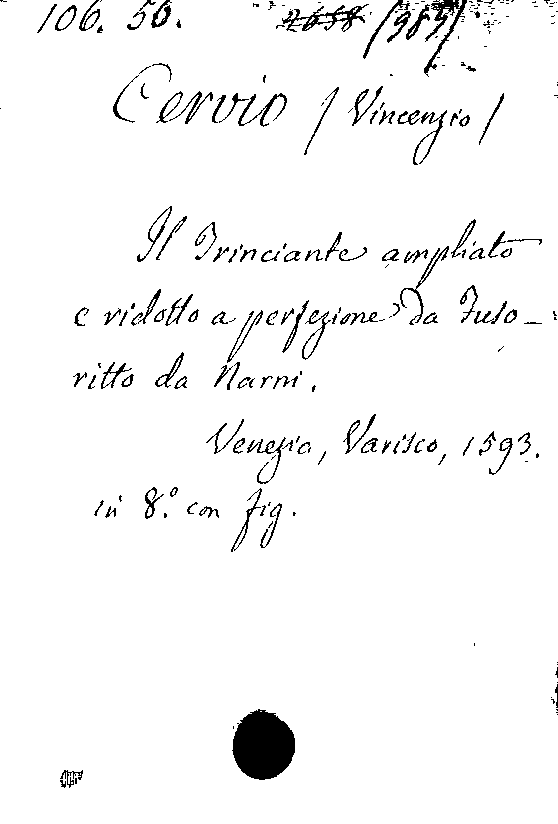 106. 50. 2658 (989)
Cervio / Vincenzio /
Il Trinciante ampliato
e ridotto a perfezione da Fuso-
ritto da Narni.
Venezia, Varisco, 1593.
in 8.° con fig.